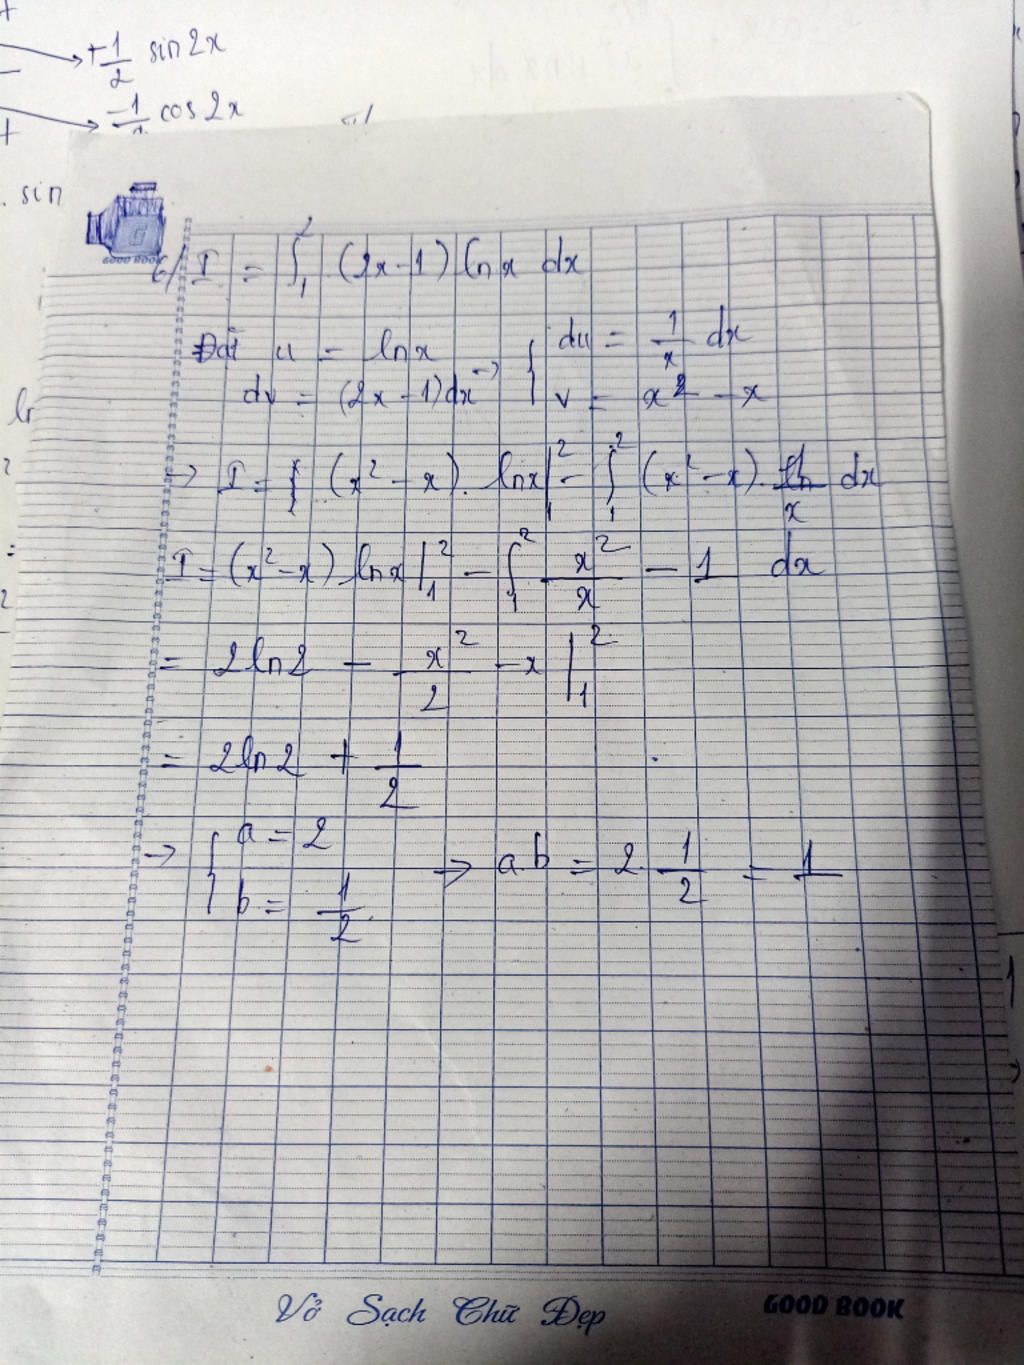 +1/2 sin2x
-1/ cos2x
. sin
GOOD BOOK
6/ I = ∫₁² (2x-1) ln x dx
Đặt u = ln x → { du = 1/x dx
dv = (2x-1)dx v = x² - x
→ I = (x² - x). lnx|₁² - ∫₁² (x² - x). 1/x dx
I = (x² - x) lnx|₁² - ∫₁² x²/x - 1 dx
= 2ln2 - x²/2 - x |₁²
= 2ln2 + 1/2
→ { a = 2 → a.b = 2. 1/2 = 1
b = 1/2
Vở Sạch Chữ Đẹp GOOD BOOK